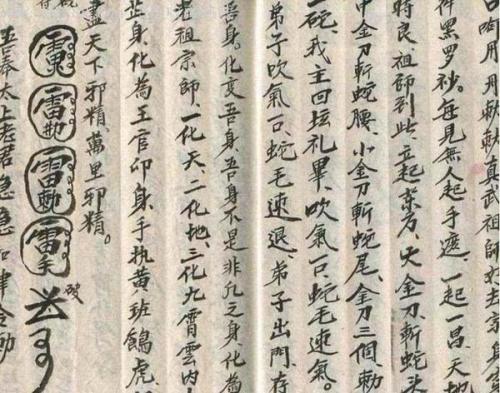 口唵用飛勅勅真武祖師
神黑罗砂。每見無人起手選、一起一昌、天地
時良、祖師到此、立起東方、大金刀、斬蛇头
中金刀斬蛇腰、小金刀斬蛇尾、金刀三個、勅
一碗、我主回坛礼畢、吹氣一口、蛇毛速氣。
弟子吹氣一口、蛇毛速退、弟子出門、存
吾身。化变吾身、吾身不是非凡之身、化為
老祖宗師、一化天、二化地、三化九霄雲内
芷身、化為王官卯身、手执黄班餓虎、
盡天下邪精、萬里邪精。
雷 雷 雷 雷 破
吾奉太上老君急急如律令勅